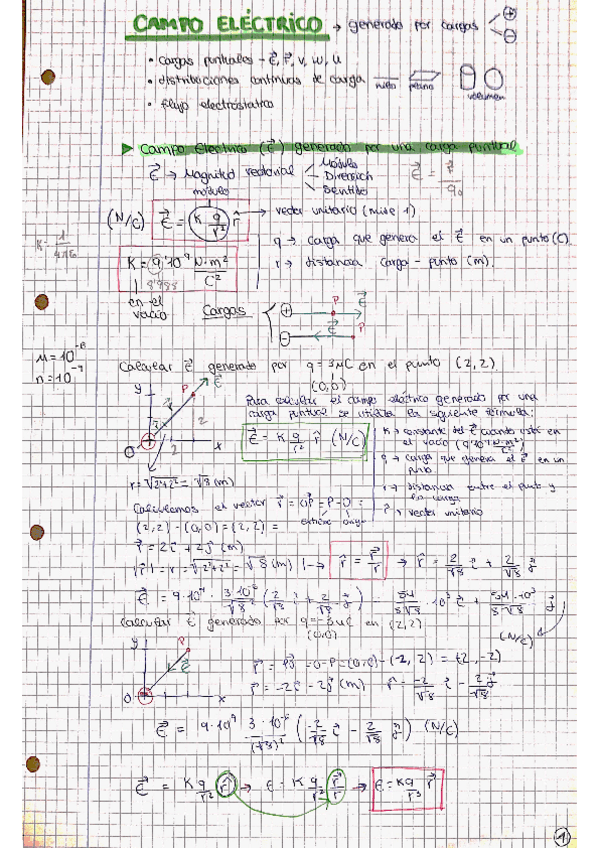 CAMPO ELÉCTRICO → generado por cargas ⊕ ⊖
• cargas puntuales - E⃗, F⃗, V, W, U
• distribuciones continuas de carga hilo plano volumen
• flujo electrostático
▶ Campo eléctrico (E⃗) generado por una carga puntual
E⃗ → Magnitud vectorial Módulo Dirección Sentido
E⃗ = F⃗/q₀
módulo
(N/C) E⃗ = K q/r² r̂ → vector unitario (mide 1)
K = 1/4πε₀
q → carga que genera el E⃗ en un punto (C)
K = 9·10⁹ N·m²/C²
r → distancia carga - punto (m).
en el vacío
Cargas ⊕ P E⃗
⊖ E⃗ P
n = 10⁻⁹
Calcular E⃗ generado por q = 3μC en el punto (2,2).
(0,0)
y P E⃗
2
O 2 x
Para calcular el campo eléctrico generado por una
carga puntual se utiliza la siguiente fórmula:
E⃗ = K q/r² r̂ (N/C)
K → constante del E⃗ cuando está en
el vacío (9·10⁹ N·m²/C²)
q → carga que genera el E⃗ en un
punto.
r → distancia entre el punto y
la carga
r̂ → vector unitario
r = √2²+2² = √8 (m)
Calculamos el vector r⃗ = OP = P-O =
extremo origen
(2,2) - (0,0) = (2,2) =
r⃗ = 2i⃗ + 2j⃗ (m)
|r⃗| = r = √2²+2² = √8 (m) → r̂ = r⃗/r → r̂ = 2/√8 i⃗ + 2/√8 j⃗
E⃗ = 9·10⁹ · 3·10⁻⁶/√8² (2/√8 i⃗ + 2/√8 j⃗) = 54/8√8 · 10³ i⃗ + 54·10³/8√8 j⃗
(N/C)
Calcular E⃗ generado por q = -3μC en (2,2)
(0,0)
y P
E⃗
O x
r⃗ = PO = O-P = (0,0) - (2,2) = (-2,-2)
r⃗ = -2i⃗ - 2j⃗ (m) r̂ = -2/√8 i⃗ - 2/√8 j⃗
E⃗ = 9·10⁹ 3·10⁻⁶/(√8)² (-2/√8 i⃗ - 2/√8 j⃗) (N/C)
E⃗ = K q/r² r̂ → E = K q/r² r⃗/r → E = Kq/r³ r⃗
1